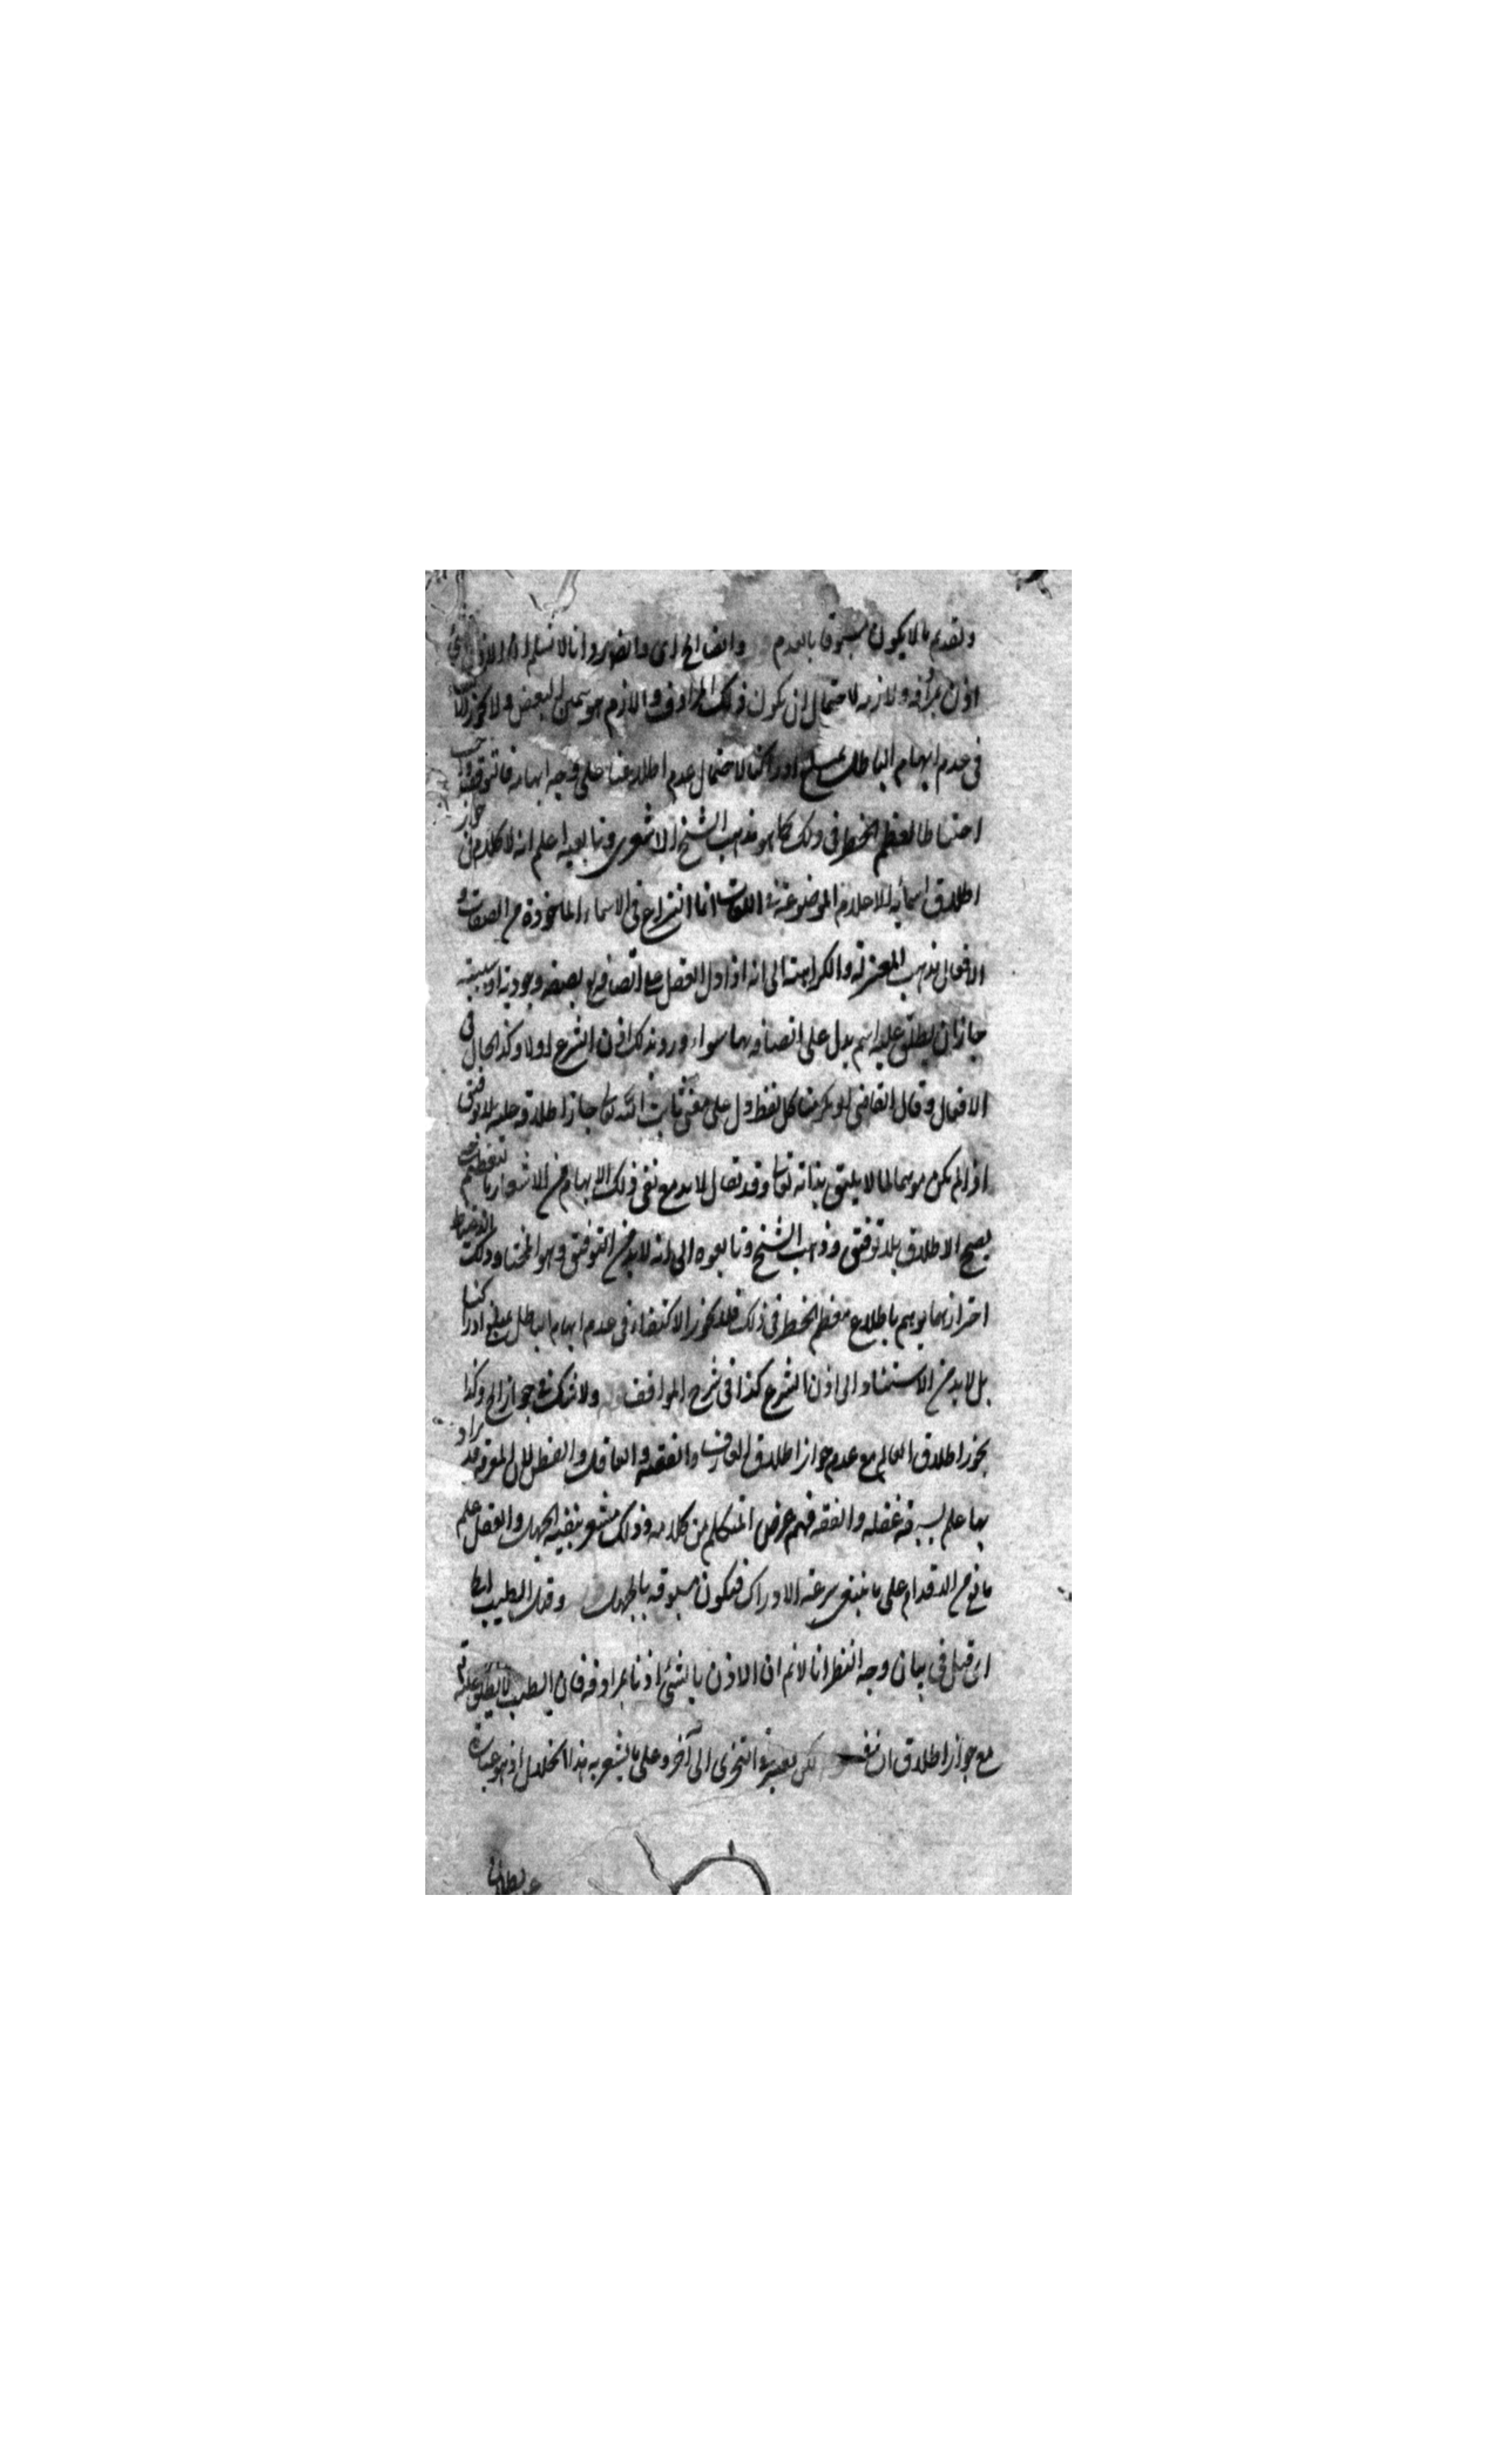 والقديم ما لا يكون مسبوقا بالعدم وايضا الخ اى وانا لا نسلم ان الاذن
اذن بمرادفه ولازمه لاحتمال ان يكون ذلك المرادف واللازم موهمين للبعض ولا يجوز
فى عدم ايهام الباطل بمبلغ ادراكنا لاحتمال عدم اطلاعنا على وجه ايهامه فالتوقف
احتياطا لعظم الخطر فى ذلك كما هو مذهب الشيخ الاشعرى ومتابعيه اعلم انه لا كلام فى جواز
اطلاق اسمائه الاعلام الموضوعة فى اللغات انما النزاع فى الاسماء الماخوذة من الصفات و
الافعال فذهب المعتزلة والكرامية الى انه اذا دل العقل على اتصافه بصفة وجودية او سلبية
جاز ان يطلق عليه اسم يدل على اتصافه بها سواء ورد بذلك اذن الشرع اولا وكذا الحال فى
الافعال وقال القاضى ابو بكر منا كل لفظ دل على معنى ثابت لله تعا جاز اطلاقه عليه بلا توقيف
اذا لم يكن موهما لما لا يليق بذاته تعا وقد يقال لا بد مع نفى ذلك الايهام من الاشعار بالتعظيم حتى
يصح الاطلاق بلا توقيف وذهب الشيخ ومتابعوه الى انه لابد من التوقيف وهو المختار وذلك للاحتياط
احترازا عما يوهم باطلا لعظم الخطر فى ذلك فلا يجوز الاكتفاء فى عدم ايهام الباطل بمبلغ ادراكنا
بل لابد من الاستناد الى اذن الشرع كذا فى شرح المواقف ولا شك فى جواز الخ وكذا
يجوز اطلاق العالم مع عدم جواز اطلاق العارف والفقيه والعاقل والفطن لان المعرفة قد يراد
بها علم يسبقه غفلة والفقه فهم غرض المتكلم من كلامه وذلك مشعر بسابقة الجهل والعقل علم
مانع من الاقدام على ما لا ينبغى سرعة الادراك فيكون مسبوقة بالجهل وقيل الطبيب
اى قيل فى بيان وجه النظر انا لانم ان الاذن بالشئ اذنا بمرادفه فان الطبيب لا يطلق عليه تع
مع جواز اطلاق الشافى لكن يعبر التحرى الى آخره على ما يشعر به هذا الخلل اذ هو عبارة
عن بطلان